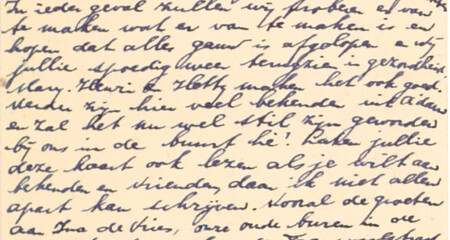 In ieder geval zullen wij proberen er van
te maken wat er van te maken is en
hopen dat alles gauw is afgelopen e wij
jullie spoedig weer terugzien in gezondheid.
Mary, Henri en Hetty maken het ook goed.
Verder zijn hier veel bekenden uit Adam
en zal het nu wel stil zijn geworden
bij ons in de buurt hè! Laten jullie
deze kaart ook lezen als je wilt aan
bekenden en vrienden, daar ik niet allen
apart kan schrijven. Vooral de groeten
aan Ina de Vries, onze oude buren in de